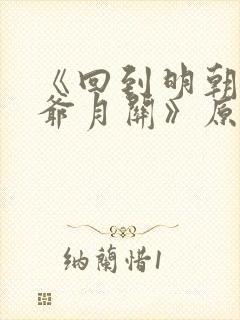 《回到明朝
爷月关》原
纳兰惜1